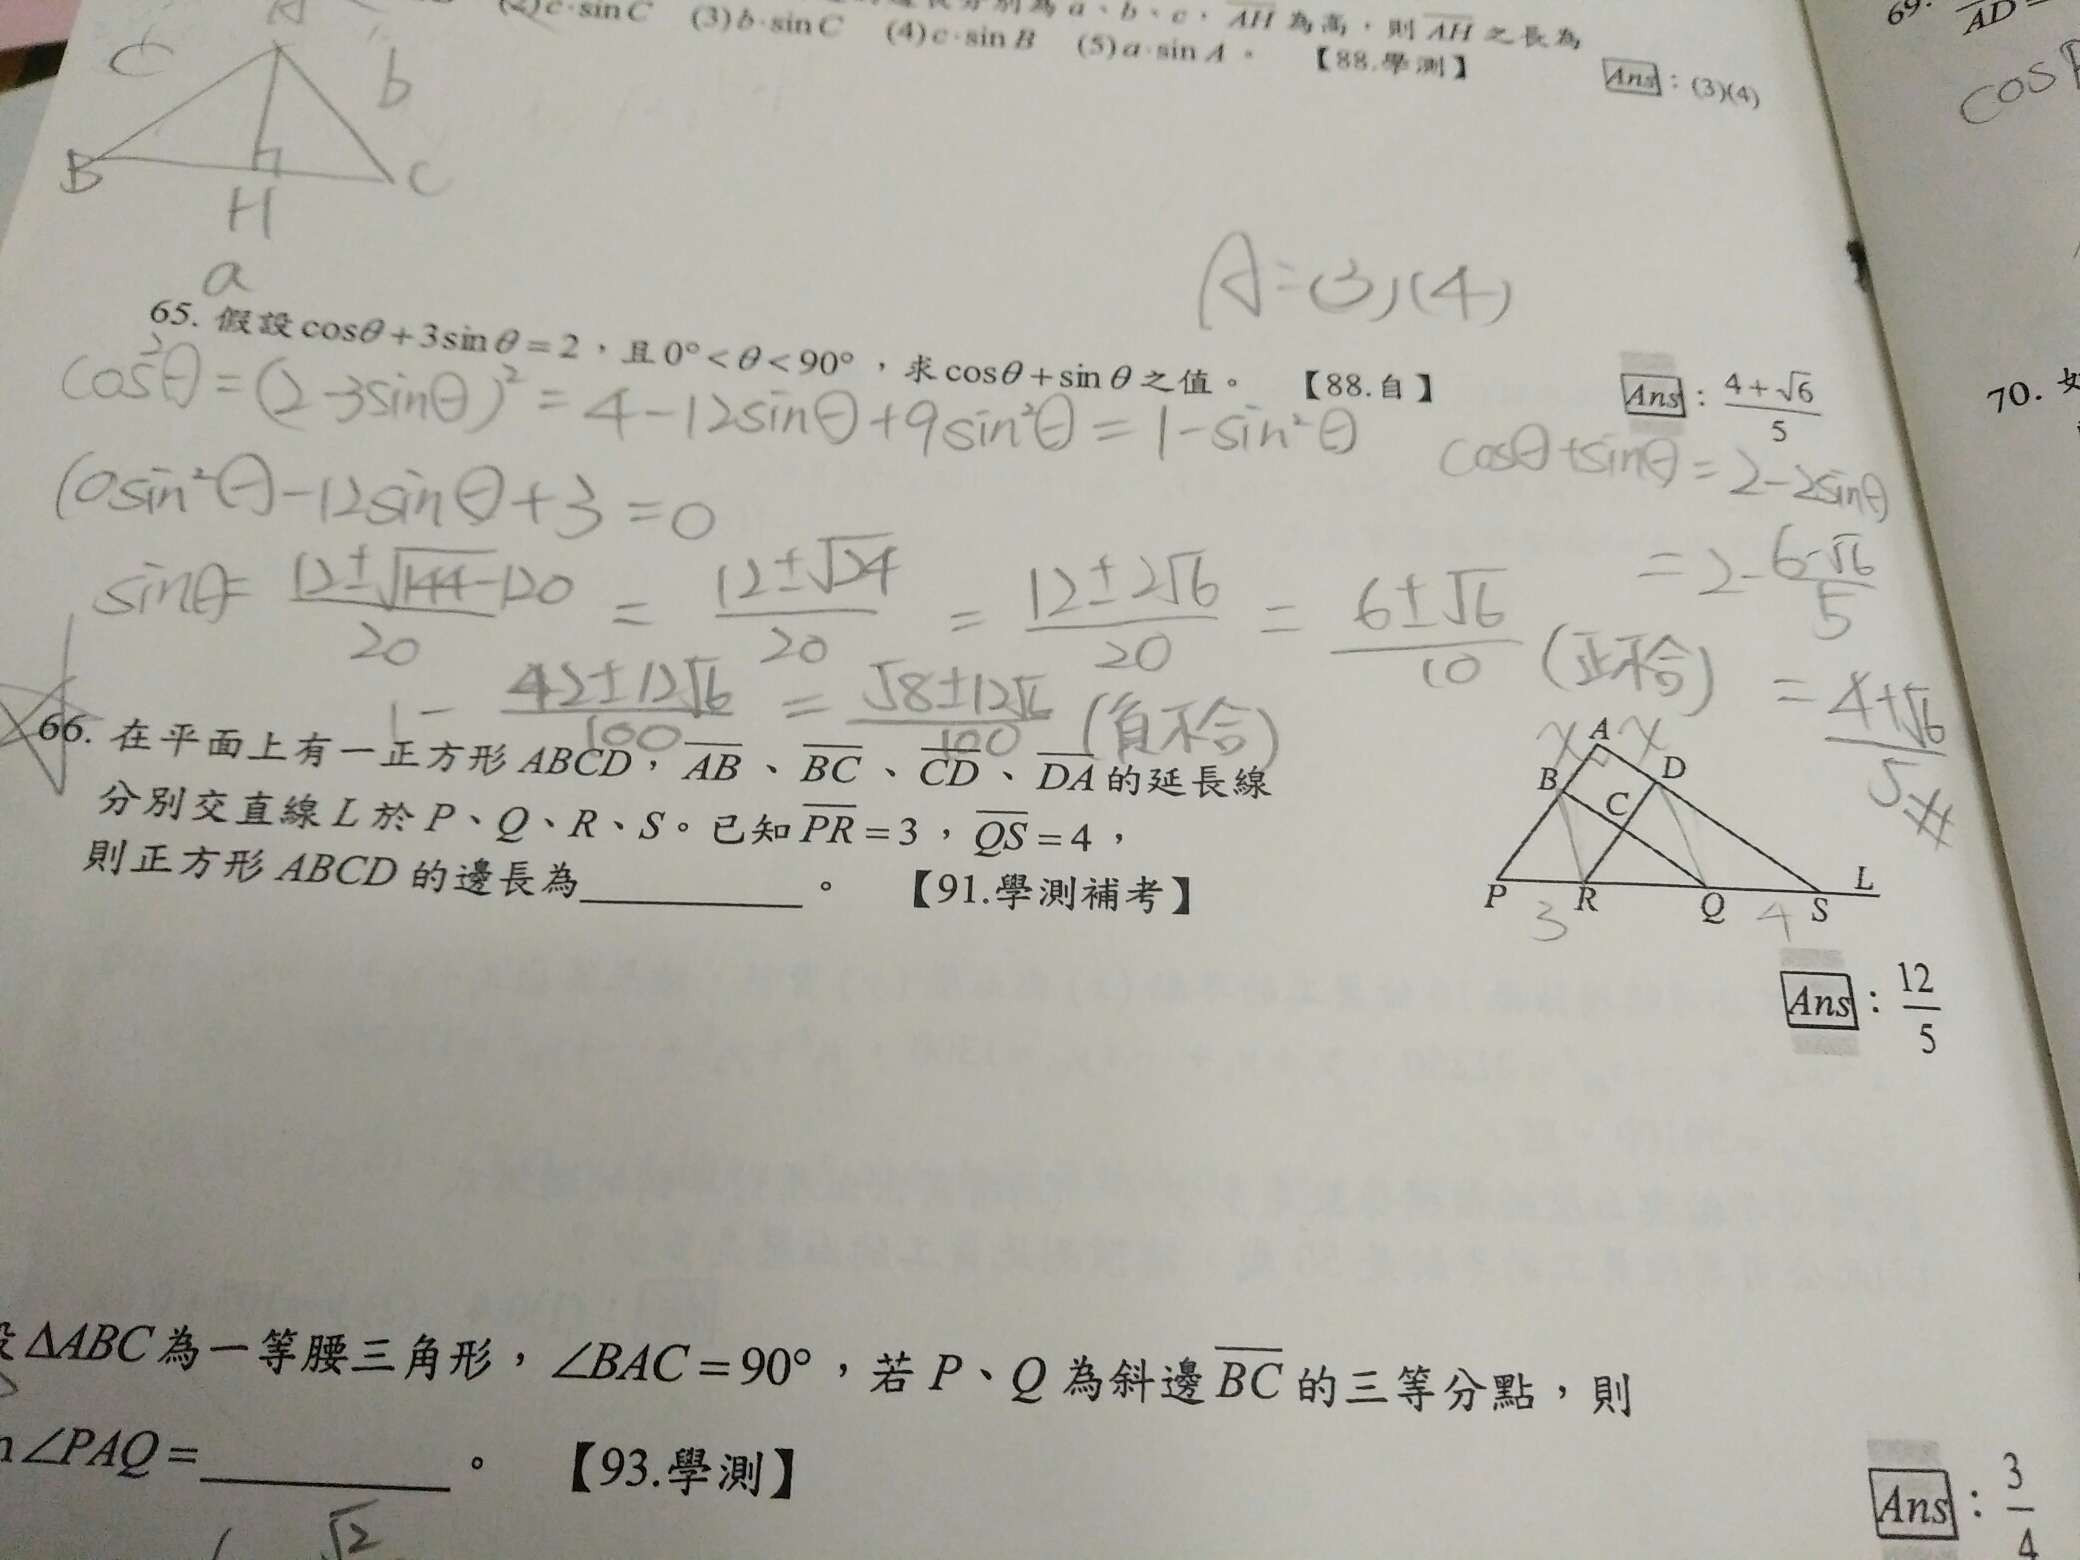 (2) c·sin C (3) b·sin C (4) c·sin B (5) a·sin A。 【88.學測】
a、b、c，AH 為高，則 AH 之長為
Ans：(3)(4)
C
b
B
H
C
a
A=(3)(4)
65. 假設 cosθ+3sinθ=2，且 0°<θ<90°，求 cosθ+sinθ 之值。 【88.自】
Ans：(4+√6)/5
cos²θ=(2-3sinθ)²=4-12sinθ+9sin²θ=1-sin²θ
10sin²θ-12sinθ+3=0
sinθ=(12±√144-120)/20=(12±√24)/20=(12±2√6)/20=(6±√6)/10 (正不合)
1-(42±12√6)/100=(√8±12√6)/100 (負不合)
cosθ+sinθ=2-2sinθ
=2-(6-√6)/5
=(4+√6)/5 #
66. 在平面上有一正方形 ABCD，AB、BC、CD、DA 的延長線
分別交直線 L 於 P、Q、R、S。已知 PR=3，QS=4，
則正方形 ABCD 的邊長為＿＿＿＿。 【91.學測補考】
x A x
B D
C
P R Q S L
3 4
Ans：12/5
ΔABC 為一等腰三角形，∠BAC=90°，若 P、Q 為斜邊 BC 的三等分點，則
∠PAQ=＿＿＿＿。 【93.學測】
Ans：3/4
√2
69.
AD
cos
70.